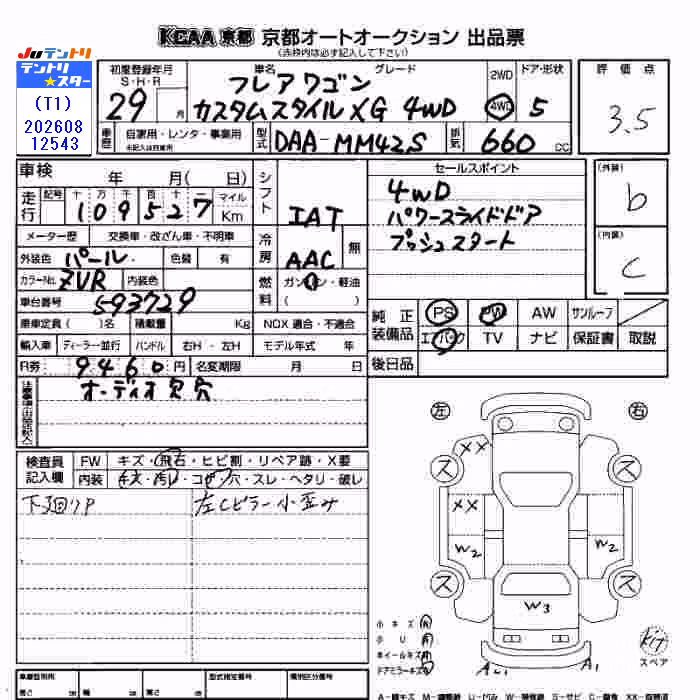 KCAA 京都 京都オートオークション 出品票
(赤枠内は必ず記入して下さい)
Juテントリ
テントリ★スター
(T1)
202608
12543
初度登録年月
S・H・R
29 月
車名 グレード
フレアワゴン
カスタムスタイル XG 4WD
2WD
4WD
ドア・形状
5
評価点
3.5
車歴 自家用・レンタ・事業用
未記入は自家用
型式 DAA-MM42S
排気 660 CC
車検 年 月( 日)
走行 記号 十 万 千 百 十 一 マイル
109527 Km
メーター歴 交換車・改ざん車・不明車
外装色 パール 色替 有
カラーNo. ZVR 内装色
車台番号 593729
乗車定員 ( )名 積載量 Kg NOX 適合・不適合
輸入車 ディーラー・並行 ハンドル 右H・左H モデル年式 年
R券 9460円 名変期限 月 日
オーディオ欠穴
シフト IAT
冷房 AAC 無
燃料 ガソリン・軽油
( )
セールスポイント
4WD
パワースライドドア
プッシュスタート
(外装)
b
(内装)
C
純正装備品 PS PW AW サンルーフ
エアバック TV ナビ 保証書 取説
後日品
検査員記入欄 FW キズ・飛石・ヒビ割・リペア跡・X要
内装 キズ・汚レ・コゲ・穴・スレ・ヘタリ・破レ
下廻りP
左Cピラー小歪み
左 右
XX
ス ス
XX
W2 W2
ス ス
W3
小キズ A
小U A
ホイールキズ A
ドアミラーキズ
A1
Kit
スペア
車輌型別用 長さ 幅 高さ 型式指定番号 類別区分番号